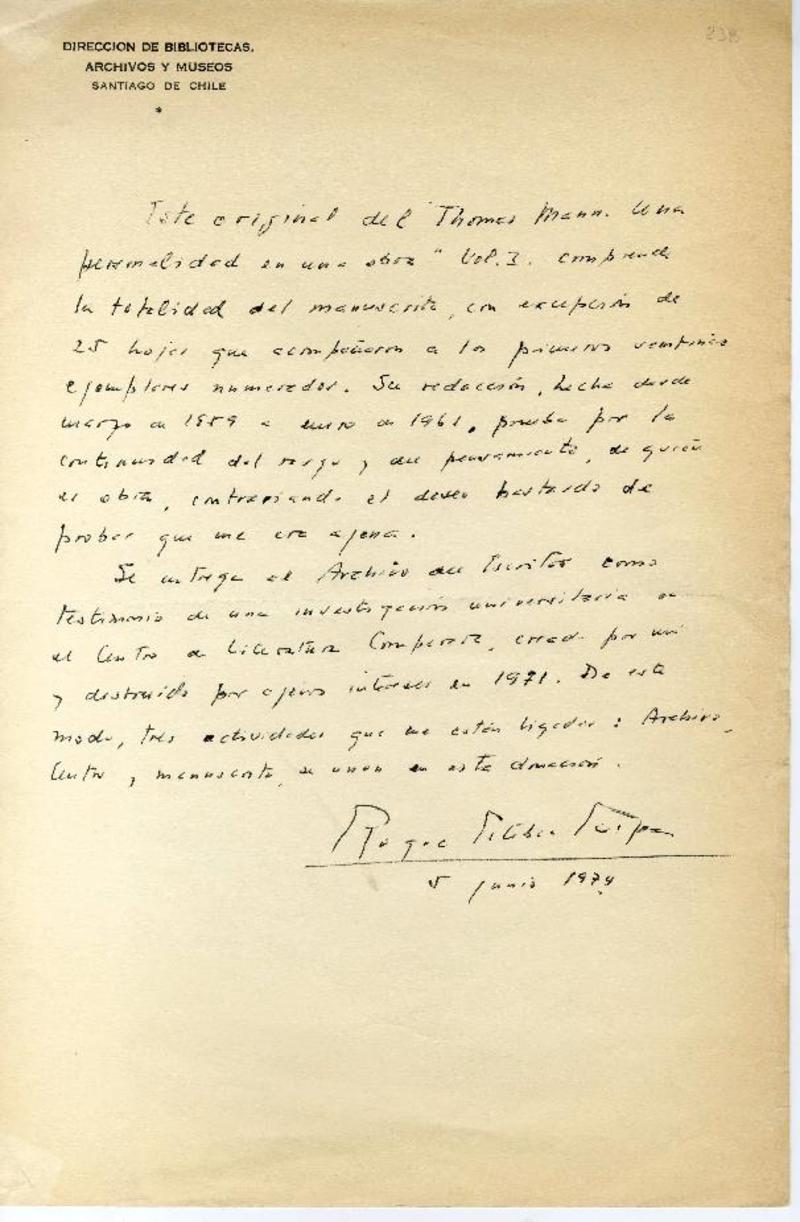 238
DIRECCION DE BIBLIOTECAS,
ARCHIVOS Y MUSEOS
SANTIAGO DE CHILE
*
Este original del "Thomas Mann. Una
personalidad en una obra" Vol. I. comprende
la totalidad del manuscrito, con excepción de
25 hojas que acompañaron a los primeros veinticinco
ejemplares numerados. Su redacción, hecha desde
marzo de 1959 a enero de 1961, prueba por la
continuidad del rasgo y del pensamiento, de quién
es obra, contrariando el deseo bastardo de
probar que me era ajena.
Se entrega al Archivo del Escritor como
testimonio de una investigación universitaria en
el Centro de Literatura Comparada, creado por mí
y destruido por ajenos intereses en 1971. De este
modo, tres actividades que me están ligadas: Archivo,
Centro y manuscrito, se unen en esta donación.
Roque Esteban Scarpa
5 junio 1974